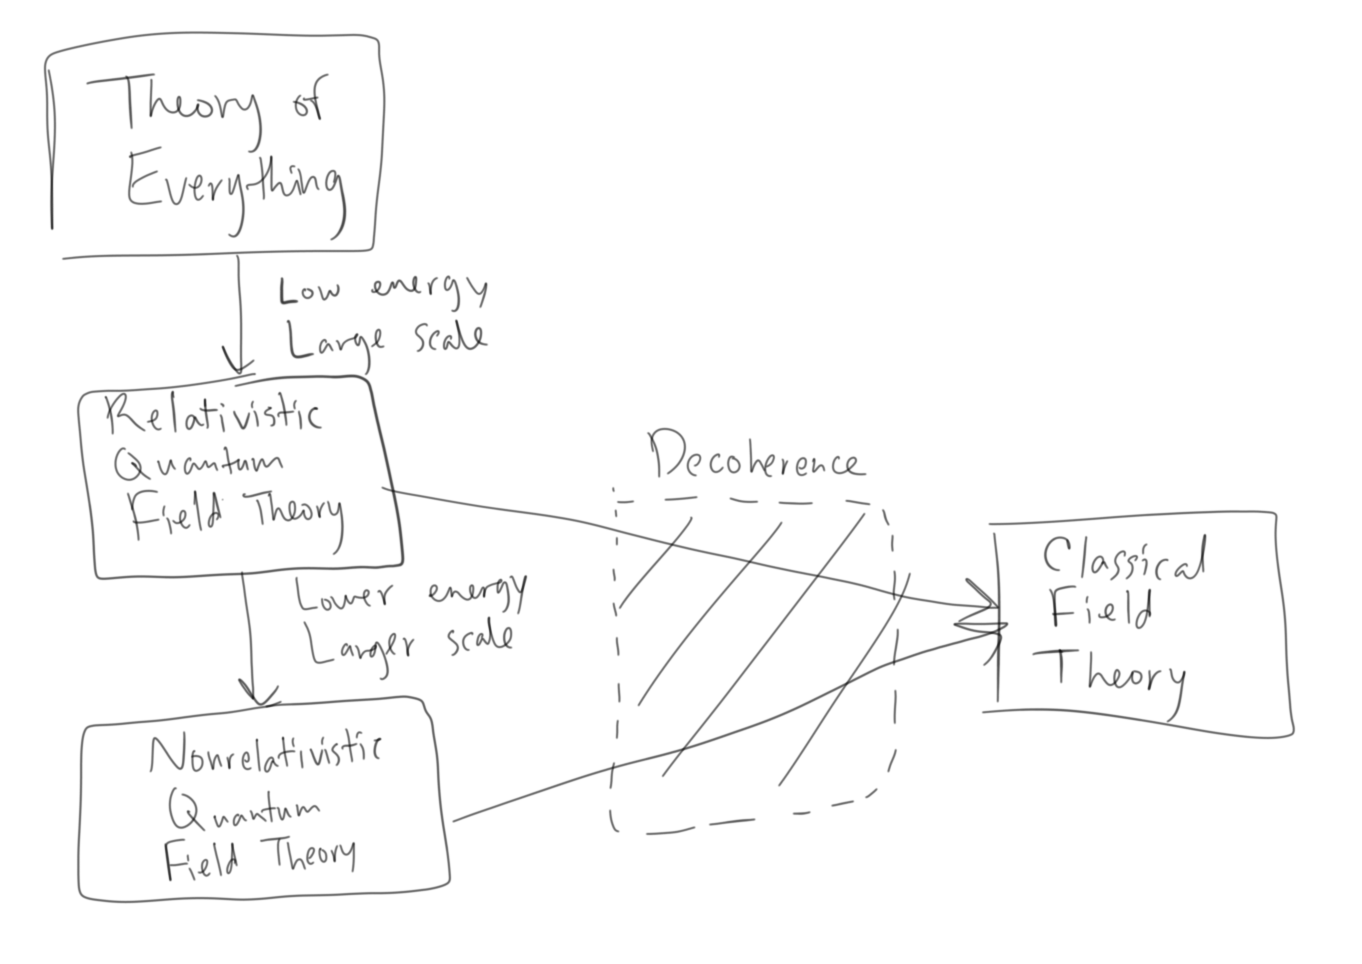 Theory of
Everything
Low energy
Large scale
Relativistic
Quantum
Field Theory
Lower energy
Larger scale
Nonrelativistic
Quantum
Field Theory
Decoherence
Classical
Field
Theory